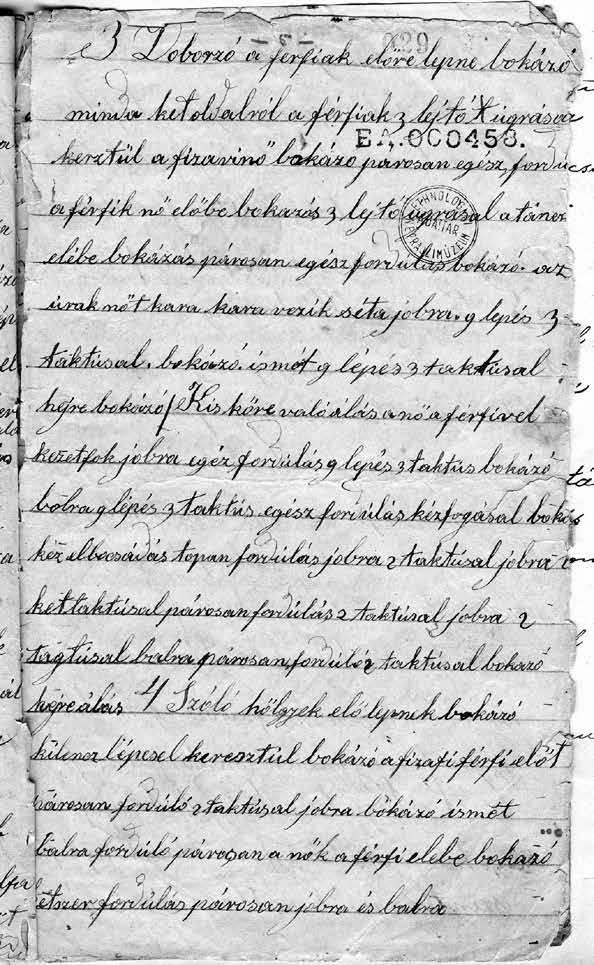 - 5 - 239
3 Doborzó a férfiak előre lepne bokázó
minda ket oldalról a férfiak 3 lejtő ugrásal
EA.000458.
kerztül a fizavinő bokázo párosan egész fordúl
ETHNOLOGIAI ADATTÁR NÉPRAJZI MÚZEUM
a férfik nő előbe bokazás 3 lejtő ugrásal a táncz
elébe bokázás párosan egész fordúlás bokázó. az
úrak nőt kara kara vezik séta jobra. 9 lepés 3
táktúsal. bokázó. ismét 9 lépés 3 taktúsal
hejre bokázó / Kis köre való álás a nő a férfivel
kezetfok jobra egéz fordúlás 9 lepés 3 taktús bokázó
bolra 9 lépés 3 taktús egész fordúlás kézfogásal bokás
kéz elbocsádás topan fordúlás jobra 2 taktúsal jobra
kettaktúsal párosan fordúlás 2 taktúsal jobra 2
tagtúsal balra párosan fordúló 2 taktúsal bokazó
hejre álás 4 Szóló hölgyek elő lepnek bokázó
kilencz lépesel keresztúl bokázó a fizafi férfi előt
párosan fordúló 2 taktúsal jobra bokázó ismét
balra fordúló párosan a nők a férfi elebe bokazó
étszer fordúlás párosan jobra és balra